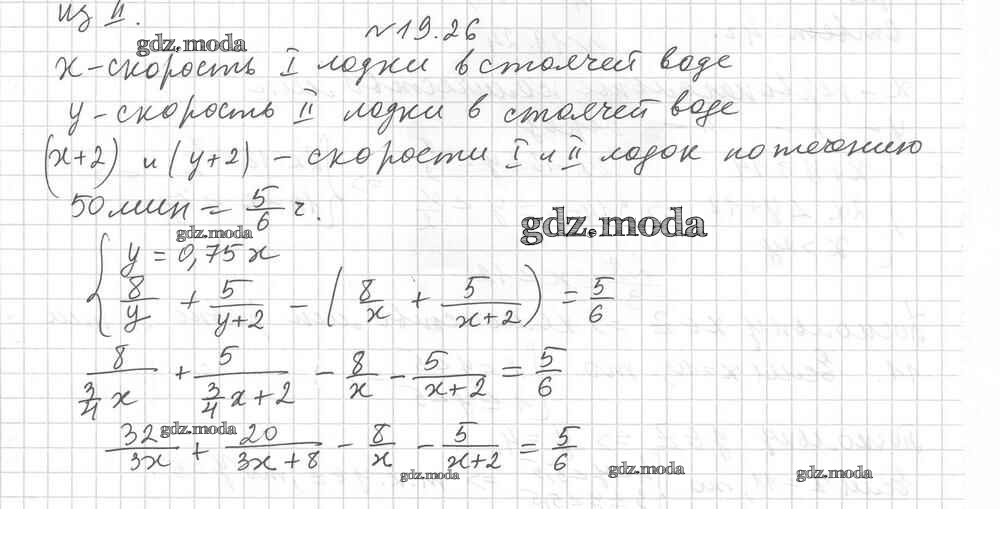 из II.
№19.26
gdz.moda
x-скорость I лодки в стоячей воде
y-скорость II лодки в стоячей воде
(x+2) и (y+2) - скорости I и II лодок по течению
50 мин = 5/6 ч.
gdz.moda
gdz.moda
{ y = 0,75x
8/y + 5/(y+2) - (8/x + 5/(x+2)) = 5/6
8/(3/4 x) + 5/(3/4 x+2) - 8/x - 5/(x+2) = 5/6
gdz.moda
32/3x + 20/(3x+8) - 8/x - 5/(x+2) = 5/6
gdz.moda
gdz.moda
gdz.moda